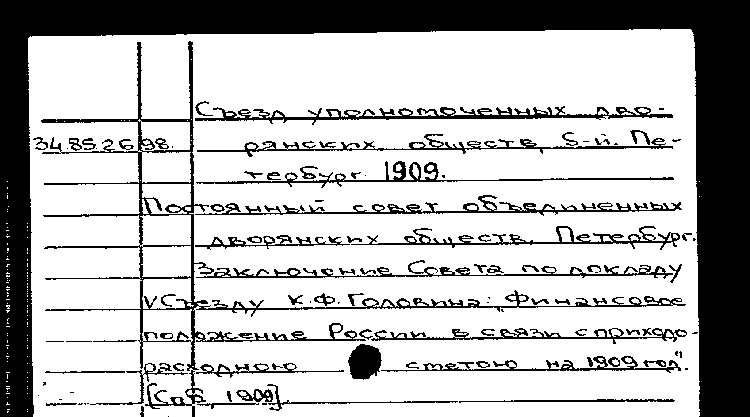 Съезд уполномоченных дво-
34.85.26.98. рянских обществ, 5-й. Пе-
тербург 1909.
Постоянный совет объединенных
дворянских обществ, Петербург.
Заключение Совета по докладу
V Съезду К.Ф. Головина: „Финансовое
положение России в связи с приходо-
расходною сметою на 1909 год".
[Спб, 1909].